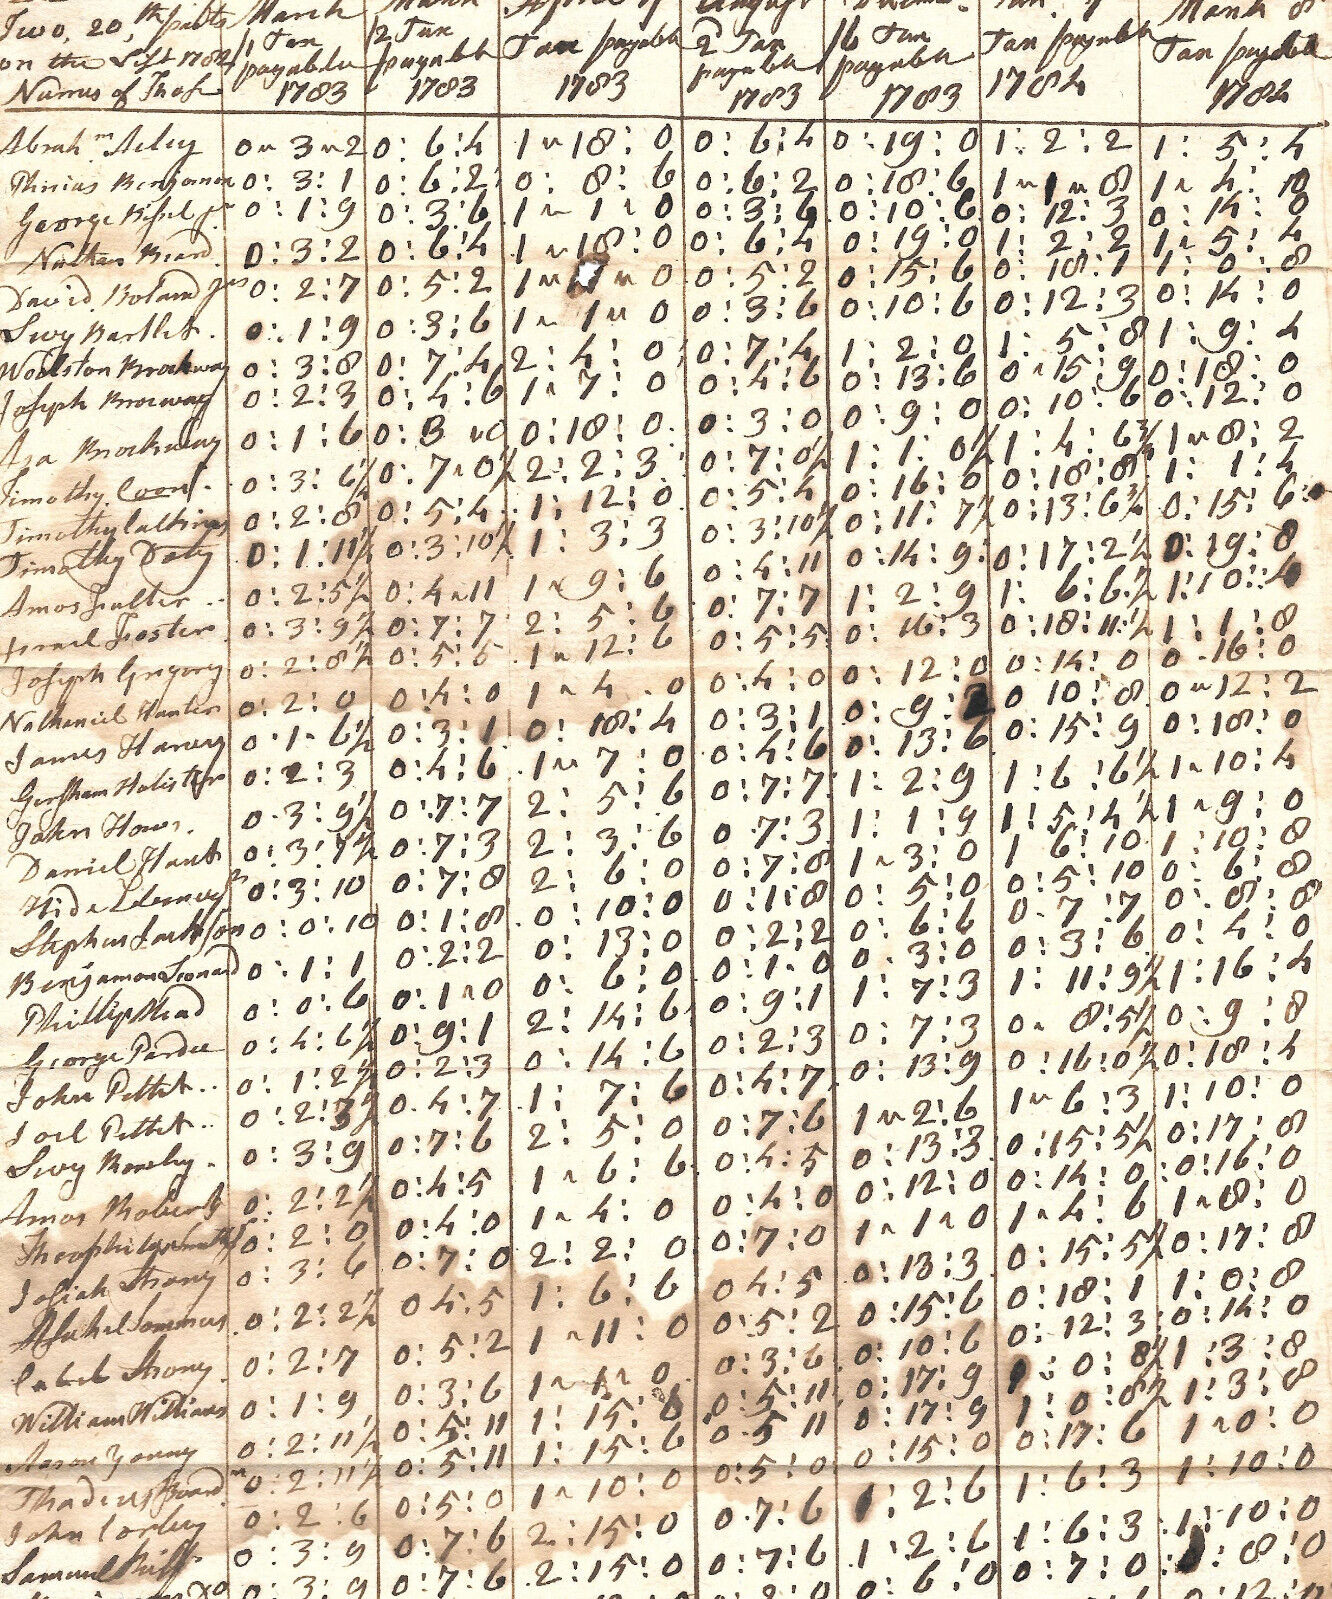 Two, 20,th parts March March April 17 August Tax payable
on the List 1782 1 Tax 2 Tax Tax payable 2 Tax 6 Tax Tax payable Tax payable
payable payable payable payable
Names of Those 1783 1783 1783 1783 1783 1782 1782
Abrahm. Acley 0 3 2 0: 6: 4 1 18: 0 0: 6: 4 0: 19: 0 1: 2: 2 1: 5: 4
Phinias Benjamon 0: 3: 1 0: 6: 2 0: 8: 6 0: 6: 2 0: 18: 6 1 1 8 1 4: 10
George Bissel jr 0: 1: 9 0: 3: 6 1 1 0 0: 3: 6 0: 10: 6 0: 12: 3 0: 14: 0
Nathan Beard. 0: 3: 2 0: 6: 4 1 18: 0 0: 6: 4 0: 19: 0 1: 2: 2 1 5: 4
David Boland 0: 2: 7 0: 5: 2 1 0 0: 5: 2 0: 15: 6 0: 18: 1 1: 0: 8
Levy Bartlet. 0: 1: 9 0: 3: 6 1 1 0 0: 3: 6 0: 10: 6 0: 12: 3 0: 14: 0
Woolston Brockway 0: 3: 8 0: 7: 4 2: 4: 0 0: 7: 4 1: 2: 0 1: 5: 8 1: 9: 4
Joseph Brocway 0: 2: 3 0: 4: 6 1 7: 0 0: 4: 6 0: 13: 6 0 15: 9 0: 18: 0
Asa Brockway 0: 1: 6 0: 3 0 0: 18: 0 0: 3: 0 0: 9: 0 0: 10: 6 0: 12: 0
Timothy Coon. 0: 3: 6½ 0: 7 0½ 2: 2: 3 0: 7: 0½ 1: 1: 0½ 1: 4: 6¾ 1 8: 2
Timothy Calkings 0: 2: 8 0: 5: 4 1: 12: 0 0: 5: 4 0: 16: 0 0: 18: 8 1: 1: 4
Timothy Doty 0: 1: 11½ 0: 3: 10½ 1: 3: 3 0: 3: 10½ 0: 11: 7½ 0: 13: 6¾ 0: 15: 6
Amos Fuller 0: 2: 5½ 0: 4 11 1 9: 6 0: 4: 11 0: 14: 9 0: 17: 2½ 0: 19: 8
Israel Foster 0: 3: 9½ 0: 7: 7 2: 5: 6 0: 7: 7 1: 2: 9 1: 6: 6½ 1: 10: 4
Joseph Grigory 0: 2: 8½ 0: 5: 5 1 12: 6 0: 5: 5 0: 16: 3 0: 18: 11½ 1: 1: 8
Nathaniel Hunter 0: 2: 0 0: 4: 0 1 4 0 0: 4: 0 0: 12: 0 0: 14: 0 0 16: 0
James Harvey 0: 1 6½ 0: 3: 1 0: 18: 4 0: 3: 1 0: 9: 2 0 10: 8 0 12: 2
Gersham Holister 0: 2: 3 0: 4: 6 1 7: 0 0: 4: 6 0: 13: 6 0: 15: 9 0: 18: 0
John Hows. 0. 3: 9½ 0: 7: 7 2: 5: 6 0: 7: 7 1: 2: 9 1: 6: 6½ 1 10: 4
Daniel Hunt 0: 3: 7½ 0: 7: 3 2: 3: 6 0 7: 3 1: 1: 9 1: 5: 4½ 1 9: 0
0: 3: 10 0: 7: 8 2: 6: 0 0: 7: 8 1 3: 0 1 6: 10 1: 10: 8
Stephen Jackson 0: 0: 10 0: 1: 8 0: 10: 0 0: 1: 8 0: 5: 0 0: 5: 10 0: 6: 8
Benjamon Leonard 0: 1: 1 0: 2: 2 0: 13: 0 0: 2: 2 0: 6: 6 0. 7: 7 0: 8: 8
Phillip Mead 0: 0: 6 0: 1 0 0: 6: 0 0: 1. 0 0. 3: 0 0: 3: 6 0: 4: 0
George Pardee 0: 4: 6½ 0: 9: 1 2: 14: 6 0: 9: 1 1: 7: 3 1: 11: 9½ 1: 16: 4
John Pettet.. 0: 1: 2½ 0: 2: 3 0: 14: 6 0: 2: 3 0: 7: 3 0 8: 5½ 0: 9: 8
Joel Pettet.. 0: 2: 3½ 0. 4: 7 1: 7: 6 0: 4: 7 0: 13: 9 0: 16: 0½ 0: 18: 4
Levy Rowley. 0: 3: 9 0: 7: 6 2: 5: 0 0: 7: 6 1 2: 6 1 6: 3 1: 10: 0
Amos Roberts 0: 2: 2½ 0: 4: 5 1 6: 6 0: 4: 5 0: 13: 3 0: 15: 5½ 0: 17: 8
Theophilus 0: 2: 0 0: 4: 0 1 4: 0 0: 4: 0 0: 12: 0 0: 14: 0 0: 16: 0
Josiah Strong 0: 3: 6 0: 7: 0 2: 2: 0 0: 7: 0 1 1 0 1 4: 6 1 8: 0
Sommers 0: 2: 2½ 0 4. 5 1: 6: 6 0 4: 5 0: 13: 3 0: 15: 5½ 0: 17: 8
Caleb Strong. 0: 2: 7 0: 5: 2 1 11: 0 0: 5: 2 0: 15: 6 0: 18: 1 1: 0: 8
William Williams 0: 1: 9 0: 3: 6 1 1 0 0: 3: 6 0: 10: 6 0: 12: 3 0: 14: 0
Aaron Young 0: 2: 11½ 0: 5: 11 1: 15: 6 0: 5: 11 0: 17: 9 1: 0: 8½ 1: 3: 8
Thadeus 0: 2: 11½ 0: 5: 11 1: 15: 6 0. 5 11 0: 17: 9 1: 0: 8½ 1: 3: 8
John Corbey 0: 2: 6 0: 5: 0 1 10: 0 0: 5: 0 0: 15: 0 0: 17: 6 1 0: 0
Samuel 0: 3: 9 0: 7: 6 2: 15: 0 0. 7: 6 1: 2: 6 1: 6: 3 1: 10: 0
0: 3: 9 0: 7: 6 2: 15: 0 0: 7: 6 1: 2: 6 1: 6: 3 1: 10: 0
0: 6: 0 0: 7: 0 8: 0